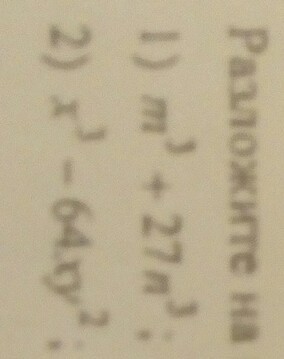 Разложите на
1) m³ + 27n³;
2) x³ − 64xy²;